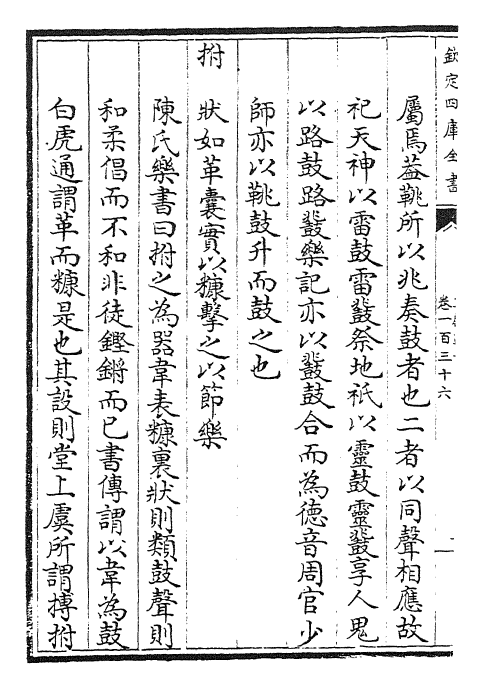 欽定四庫全書
卷一百三十六
屬焉葢鞉所以兆奏鼓者也二者以同聲相應故
祀天神以雷鼓雷鼗祭地祇以靈鼓靈鼗享人鬼
以路鼓路鼗樂記亦以鼗鼓合而為德音周官少
師亦以鞉鼓升而鼓之也
拊 狀如革囊實以糠擊之以節樂
陳氏樂書曰拊之為器韋表糠裏狀則類鼓聲則
和柔倡而不和非徒鏗鏘而已書傳謂以韋為鼓
白虎通謂革而糠是也其設則堂上虞所謂搏拊